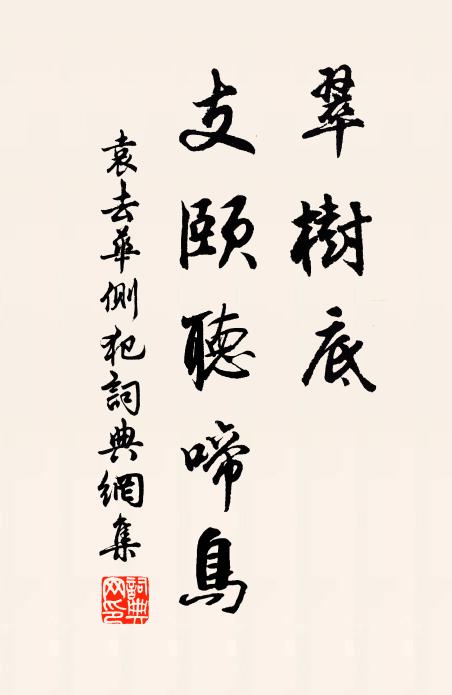 翠樹底
支頤聽啼鳥
袁去華側犯詞典網集
詞典網印